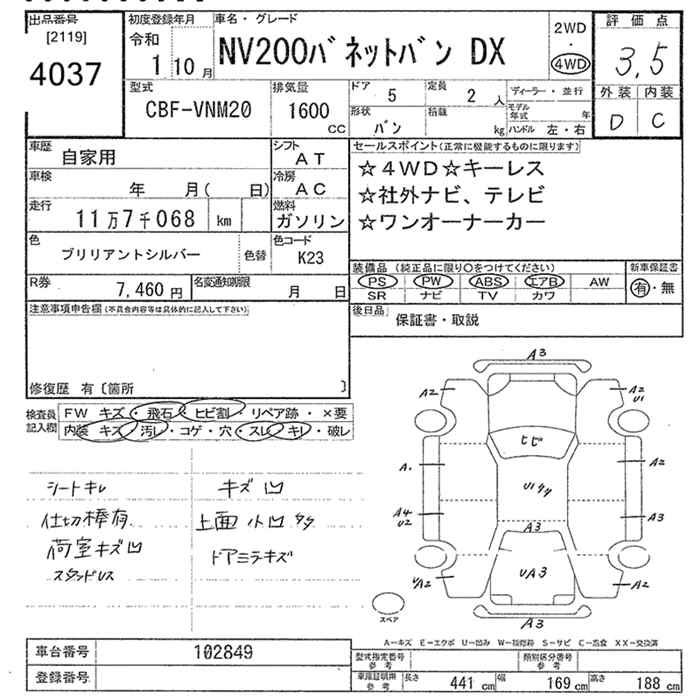 出品番号
[2119]
4037
初度登録年月
令和
1 10 月
車名・グレード
NV200バネットバン DX
2WD
・
4WD
評価点
3,5
外装 内装
D C
型式
CBF-VNM20
排気量
1600
cc
ドア 5
定員 2 人
ディーラー・並行
形状 バン
積載 kg
モデル年式 年
ハンドル 左・右
車歴 自家用
シフト AT
車検 年 月( 日)
冷房 AC
走行 11万7千068 km
燃料 ガソリン
色 ブリリアントシルバー 色替
色コード K23
R券 7,460 円
名変通知期限 月 日
セールスポイント(正常に機能するものに限ります)
☆4WD☆キーレス
☆社外ナビ、テレビ
☆ワンオーナーカー
装備品 (純正品に限り○をつけてください)
PS PW ABS エアB AW
SR ナビ TV カワ
新車保証書
有・無
後日品
保証書・取説
注意事項申告欄(不具合内容等は具体的に記入して下さい)
修復歴 有〔箇所 〕
検査員記入欄
FW キズ・飛石・ヒビ割・リペア跡・×要
内装 キズ・汚レ・コゲ・穴・スレ・キレ・破レ
シートキレ
仕切棒有
荷室キズ凹
スタッドレス
キズ凹
上面小凹タタ
ドアミラキズ
A3
A2
A2
U1
ヒビ
A.
A2
U1タタ
A4
U2
A3
A3
UA3
A2
A2
A3
スペア
A-キズ E-エクボ U-凹み W-補修跡 S-サビ C-腐食 XX-交換済
車台番号 102849
登録番号
型式指定番号 参考
類別区分番号 参考
車庫証明用 参考
長さ 441 cm 幅 169 cm 高さ 188 cm